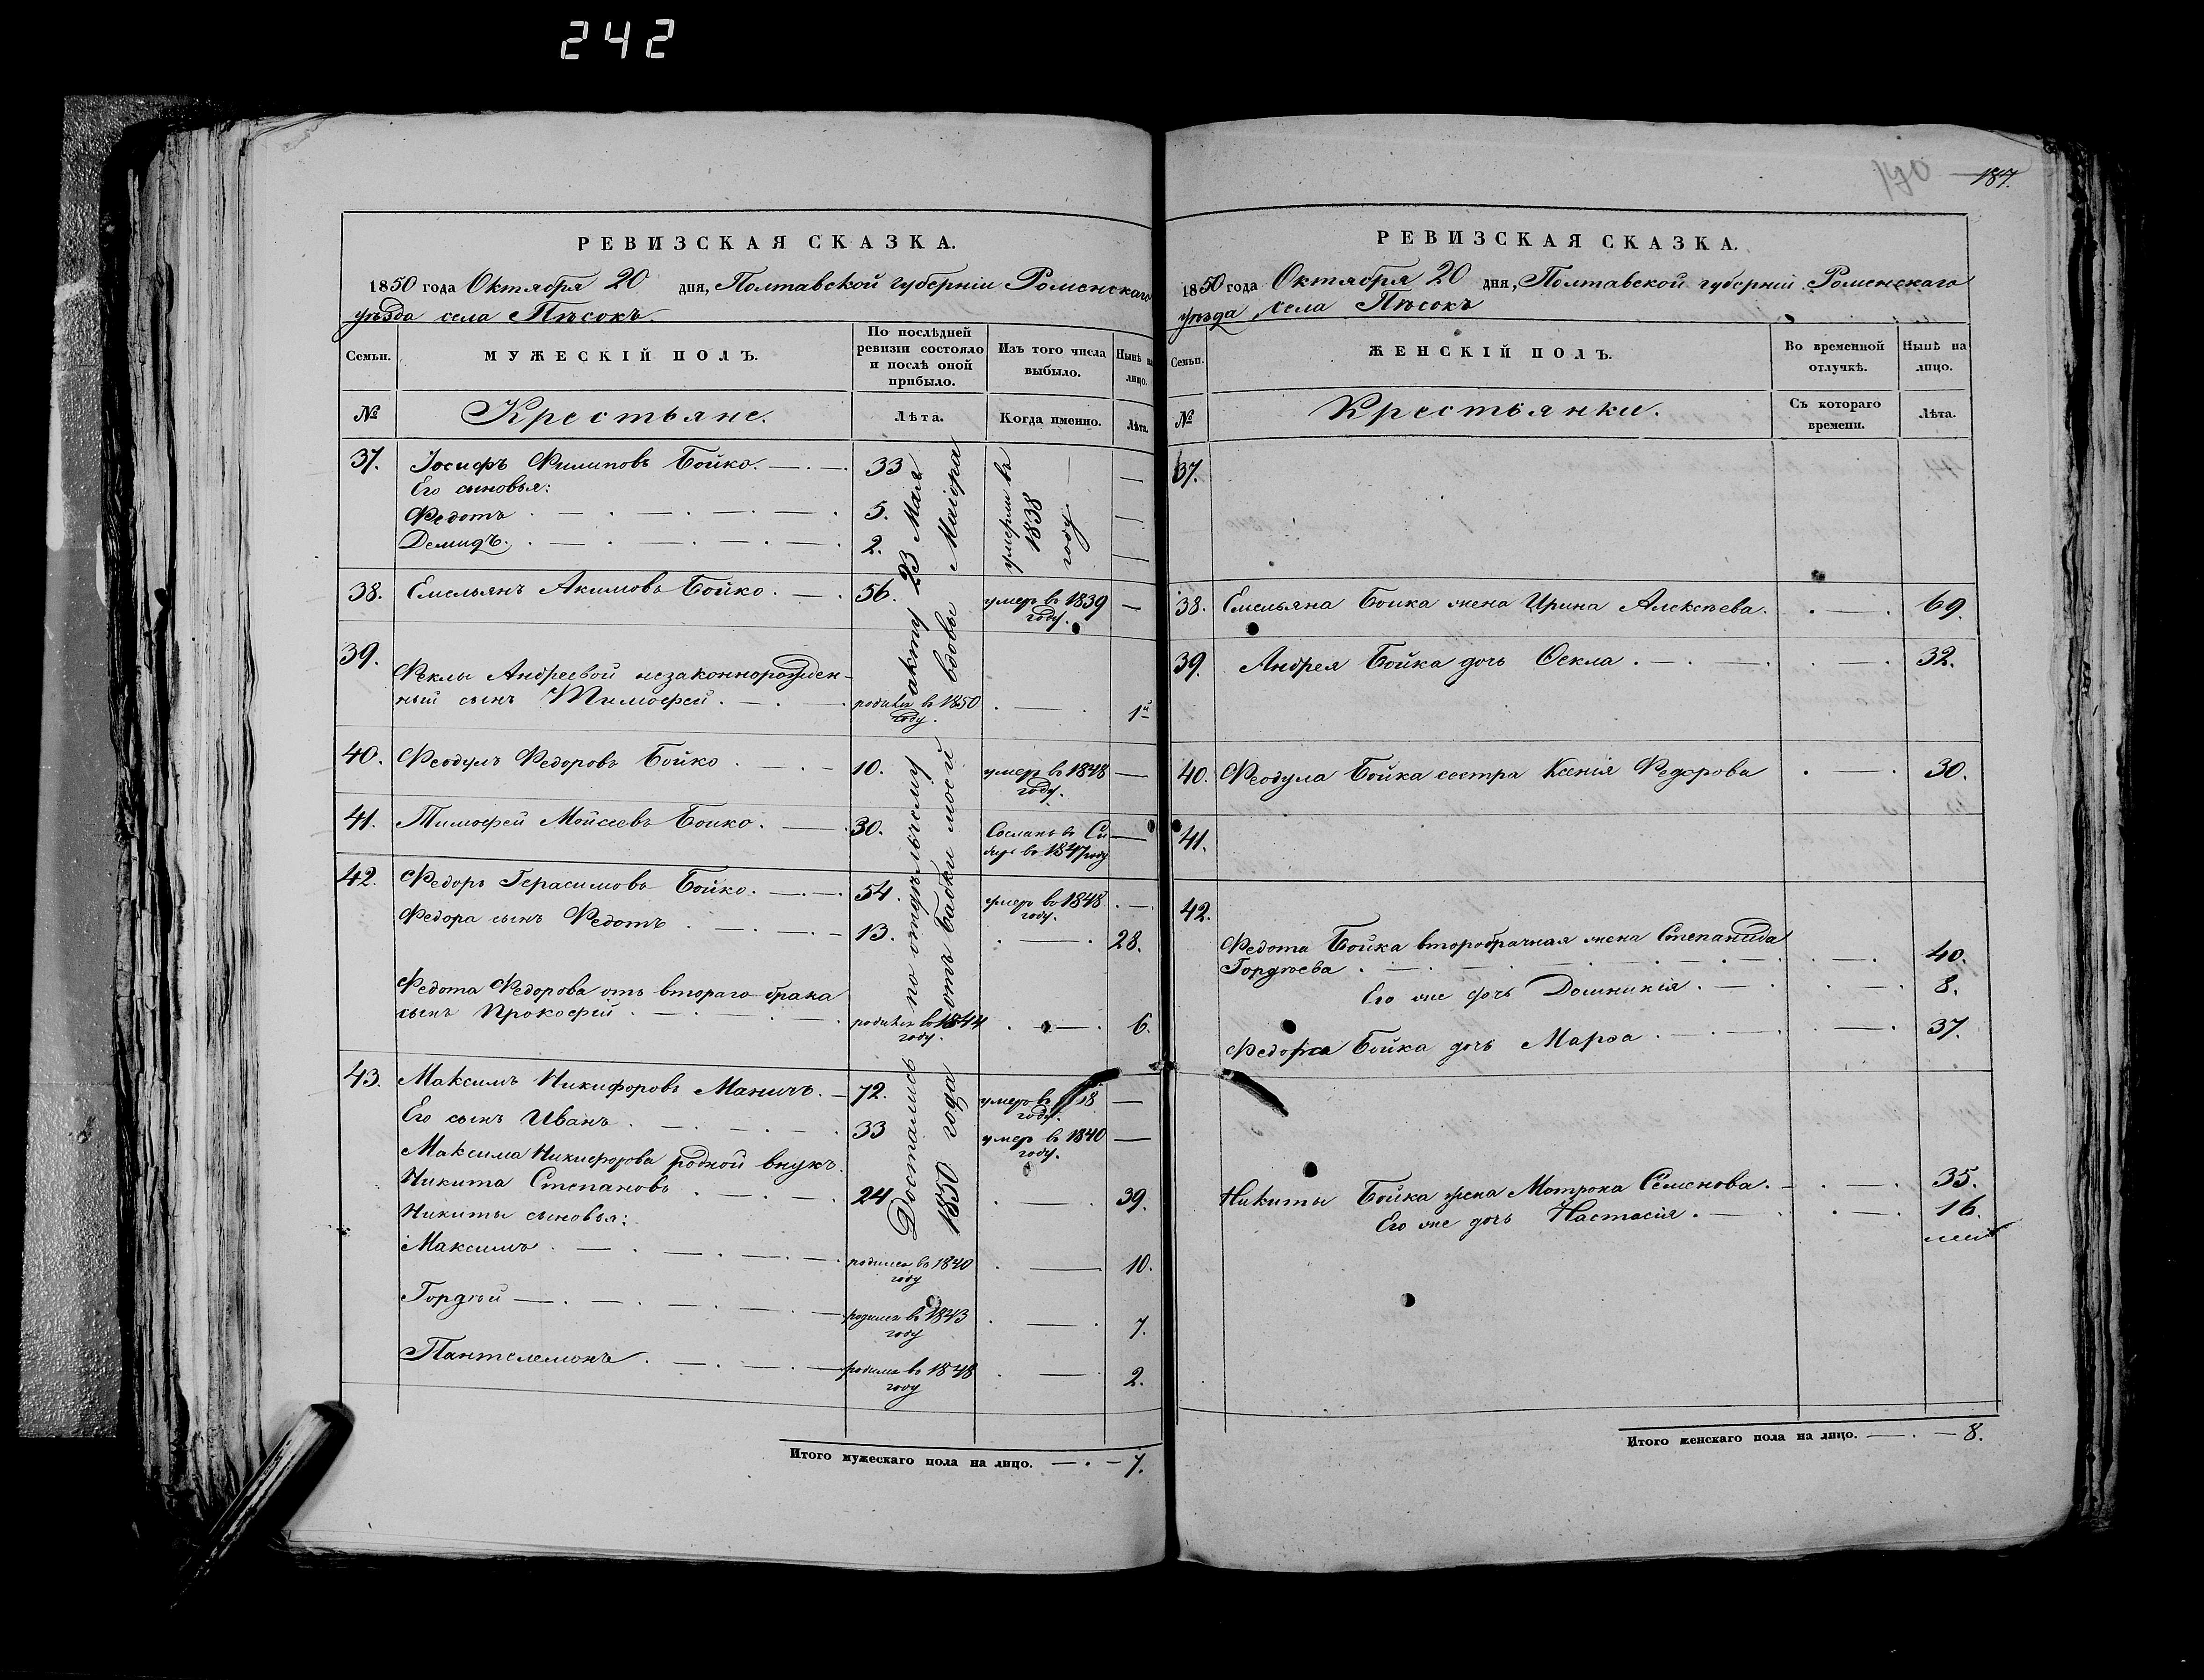 242
РЕВИЗСКАЯ СКАЗКА.
1850 года Октября 20 дня, Полтавской губерніи Роменскаго
уѣзда села Пѣсокъ.
Семьи.
МУЖЕСКІЙ ПОЛЪ.
По послѣдней ревизіи состояло и послѣ оной прибыло.
Изъ того числа выбыло.
Нынѣ на лицо.
№
Крестьяне.
Лѣта.
Когда именно.
Лѣта.
37. Іосифъ Филиповъ Бойко. 33
Его сыновья:
Федотъ 5.
Демидъ. 2.
умерли въ 1838 году
38. Емельянъ Акимовъ Бойко. 56. умеръ въ 1839 году.
39.
Феклы Андреевой незаконнорожден-
ный сынъ Тимофей. родился въ 1850 году. 1й
40. Феодулъ Федоровъ Бойко 10. умеръ въ 1848 году.
41. Тимофей Мойсеевъ Бойко. 30. Сосланъ въ Си-
бирь въ 1847 году
42. Федоръ Герасимовъ Бойко. 54. умеръ въ 1848 году.
Федора сынъ Федотъ 13. 28.
Федота Федорова отъ втораго брака
сынъ Прокофій. родился въ 1844 году. 6.
43. Максимъ Никифоровъ Маничъ. 72. умеръ въ году.
Его сынъ Иванъ 33 умеръ въ 1840 году.
Максима Никифорова родной внукъ
Никита Степановъ 24. 39.
Никиты сыновья:
Максимъ. родился въ 1840 году 10.
Гордѣй родился въ 1843 году 7.
Пантелемонъ. родился въ 1848 году 2.
Достались по отдѣльному акту 23 Мая
1850 года отъ Бабки моей вдовы Маіора
Итого мужескаго пола на лицо. 7.
187.
РЕВИЗСКАЯ СКАЗКА.
1850 года Октября 20 дня, Полтавской губерніи Роменскаго
уѣзда села Пѣсокъ
Семьи.
ЖЕНСКІЙ ПОЛЪ.
Во временной отлучкѣ.
Нынѣ на лицо.
№
Крестьянки.
Съ котораго времени.
Лѣта.
37.
38. Емельяна Бойка жена Ирина Алексѣева. 69.
39. Андрея Бойка дочь Ѳекла. 32.
40. Феодула Бойка сестра Ксенія Федорова 30.
41.
42.
Федота Бойка второбрачная жена Степанида
Гордѣева. 40.
Его же дочь Домникія. 8.
Федора Бойка дочь Марѳа 37.
Никиты Бойка жена Мотрона Семенова. 35.
Его же дочь Настасія. 16.
Итого женскаго пола на лицо. 8.